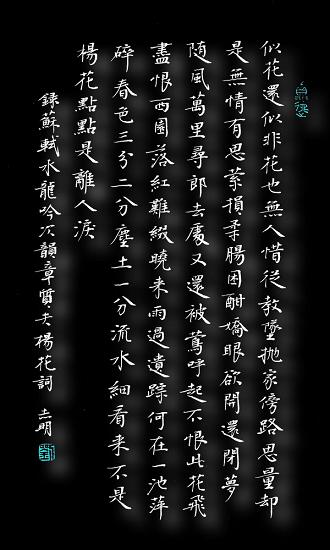 似花還似非花也無人惜從教墜拋家傍路思量却
是無情有思縈損柔腸困酣嬌眼欲開還閉夢
随風萬里尋郎去處又還被鶯呼起不恨此花飛
盡恨西園落紅難綴曉来雨過遺踪何在一池萍
碎春色三分二分塵土一分流水細看来不是
楊花點點是離人淚
録蘇軾水龍吟次韻章質夫楊花詞 志明